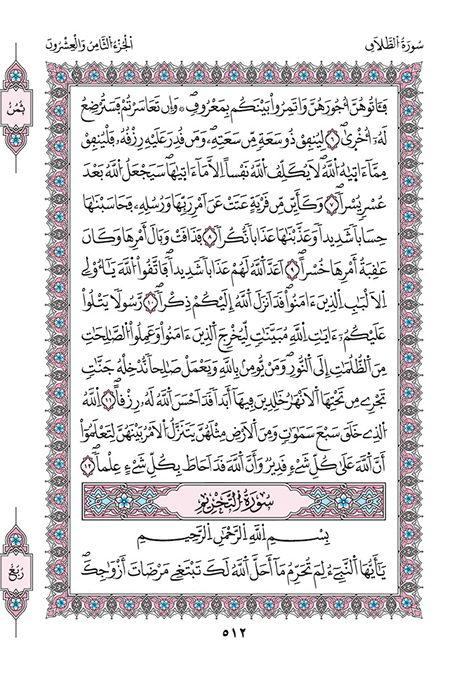 سُورَةُ الطَّلَاقِ
الْجُزْءُ الثَّامِنُ وَالْعِشْرُونَ
ثُمُنُ
فَـَٔاتُوهُنَّ أُجُورَهُنَّ وَاتَمِرُوا۟ بَيْنَكُم بِمَعْرُوفٍ وَإِن تَعَاسَرْتُمْ فَسَتُرْضِعُ
لَهُۥ أُخْرَىٰ ٦ لِيُنفِقْ ذُو سَعَةٍ مِّن سَعَتِهِۦ وَمَن قُدِرَ عَلَيْهِ رِزْقُهُۥ فَلْيُنفِقْ
مِمَّآ ءَاتَىٰهُ اللَّهُ لَا يُكَلِّفُ اللَّهُ نَفْسًا اِلَّا مَآ ءَاتَىٰهَا سَيَجْعَلُ اللَّهُ بَعْدَ
عُسْرٍ يُسْرًا ٧ وَكَأَيِّن مِّن قَرْيَةٍ عَتَتْ عَنَ اَمْرِ رَبِّهَا وَرُسُلِهِۦ فَحَاسَبْنَٰهَا
حِسَابًا شَدِيدًا وَعَذَّبْنَٰهَا عَذَابًا نُّكُرًا ٨ فَذَاقَتْ وَبَالَ أَمْرِهَا وَكَانَ
عَٰقِبَةُ أَمْرِهَا خُسْرًا ٩ اَعَدَّ اللَّهُ لَهُمْ عَذَابًا شَدِيدًا فَاتَّقُوا۟ اللَّهَ يَٰٓأُو۟لِي
اِلَالْبَٰبِ الذِينَ ءَامَنُوا۟ قَدَ اَنزَلَ اللَّهُ إِلَيْكُمْ ذِكْرًا ١٠ رَّسُولًا يَتْلُوا۟
عَلَيْكُمُۥٓ ءَايَٰتِ اللَّهِ مُبَيَّنَٰتٍ لِّيُخْرِجَ الذِينَ ءَامَنُوا۟ وَعَمِلُوا۟ الصَّٰلِحَٰتِ
مِنَ الظُّلُمَٰتِ إِلَى النُّورِ وَمَن يُومِنۢ بِاللَّهِ وَيَعْمَلْ صَٰلِحًا نُّدْخِلْهُ جَنَّٰتٍ
تَجْرِي مِن تَحْتِهَا اَلَانْهَٰرُ خَٰلِدِينَ فِيهَآ أَبَدًا قَدَ اَحْسَنَ اللَّهُ لَهُۥ رِزْقًا ١١ اَللَّهُ
الذِي خَلَقَ سَبْعَ سَمَٰوَٰتٍ وَمِنَ اَلَارْضِ مِثْلَهُنَّ يَتَنَزَّلُ اُلَامْرُ بَيْنَهُنَّ لِتَعْلَمُوٓا۟
أَنَّ اللَّهَ عَلَىٰ كُلِّ شَےْءٍ قَدِيرٌ وَأَنَّ اللَّهَ قَدَ اَحَاطَ بِكُلِّ شَےْءٍ عِلْمًا ١٢
سُورَةُ التَّحْرِيمِ
بِسْمِ اللَّهِ الرَّحْمَٰنِ الرَّحِيمِ
رُبُعُ
يَٰٓأَيُّهَا النَّبِےٓءُ لِمَ تُحَرِّمُ مَآ أَحَلَّ اللَّهُ لَكَ تَبْتَغِي مَرْضَاتَ أَزْوَٰجِكَ
٥١٢